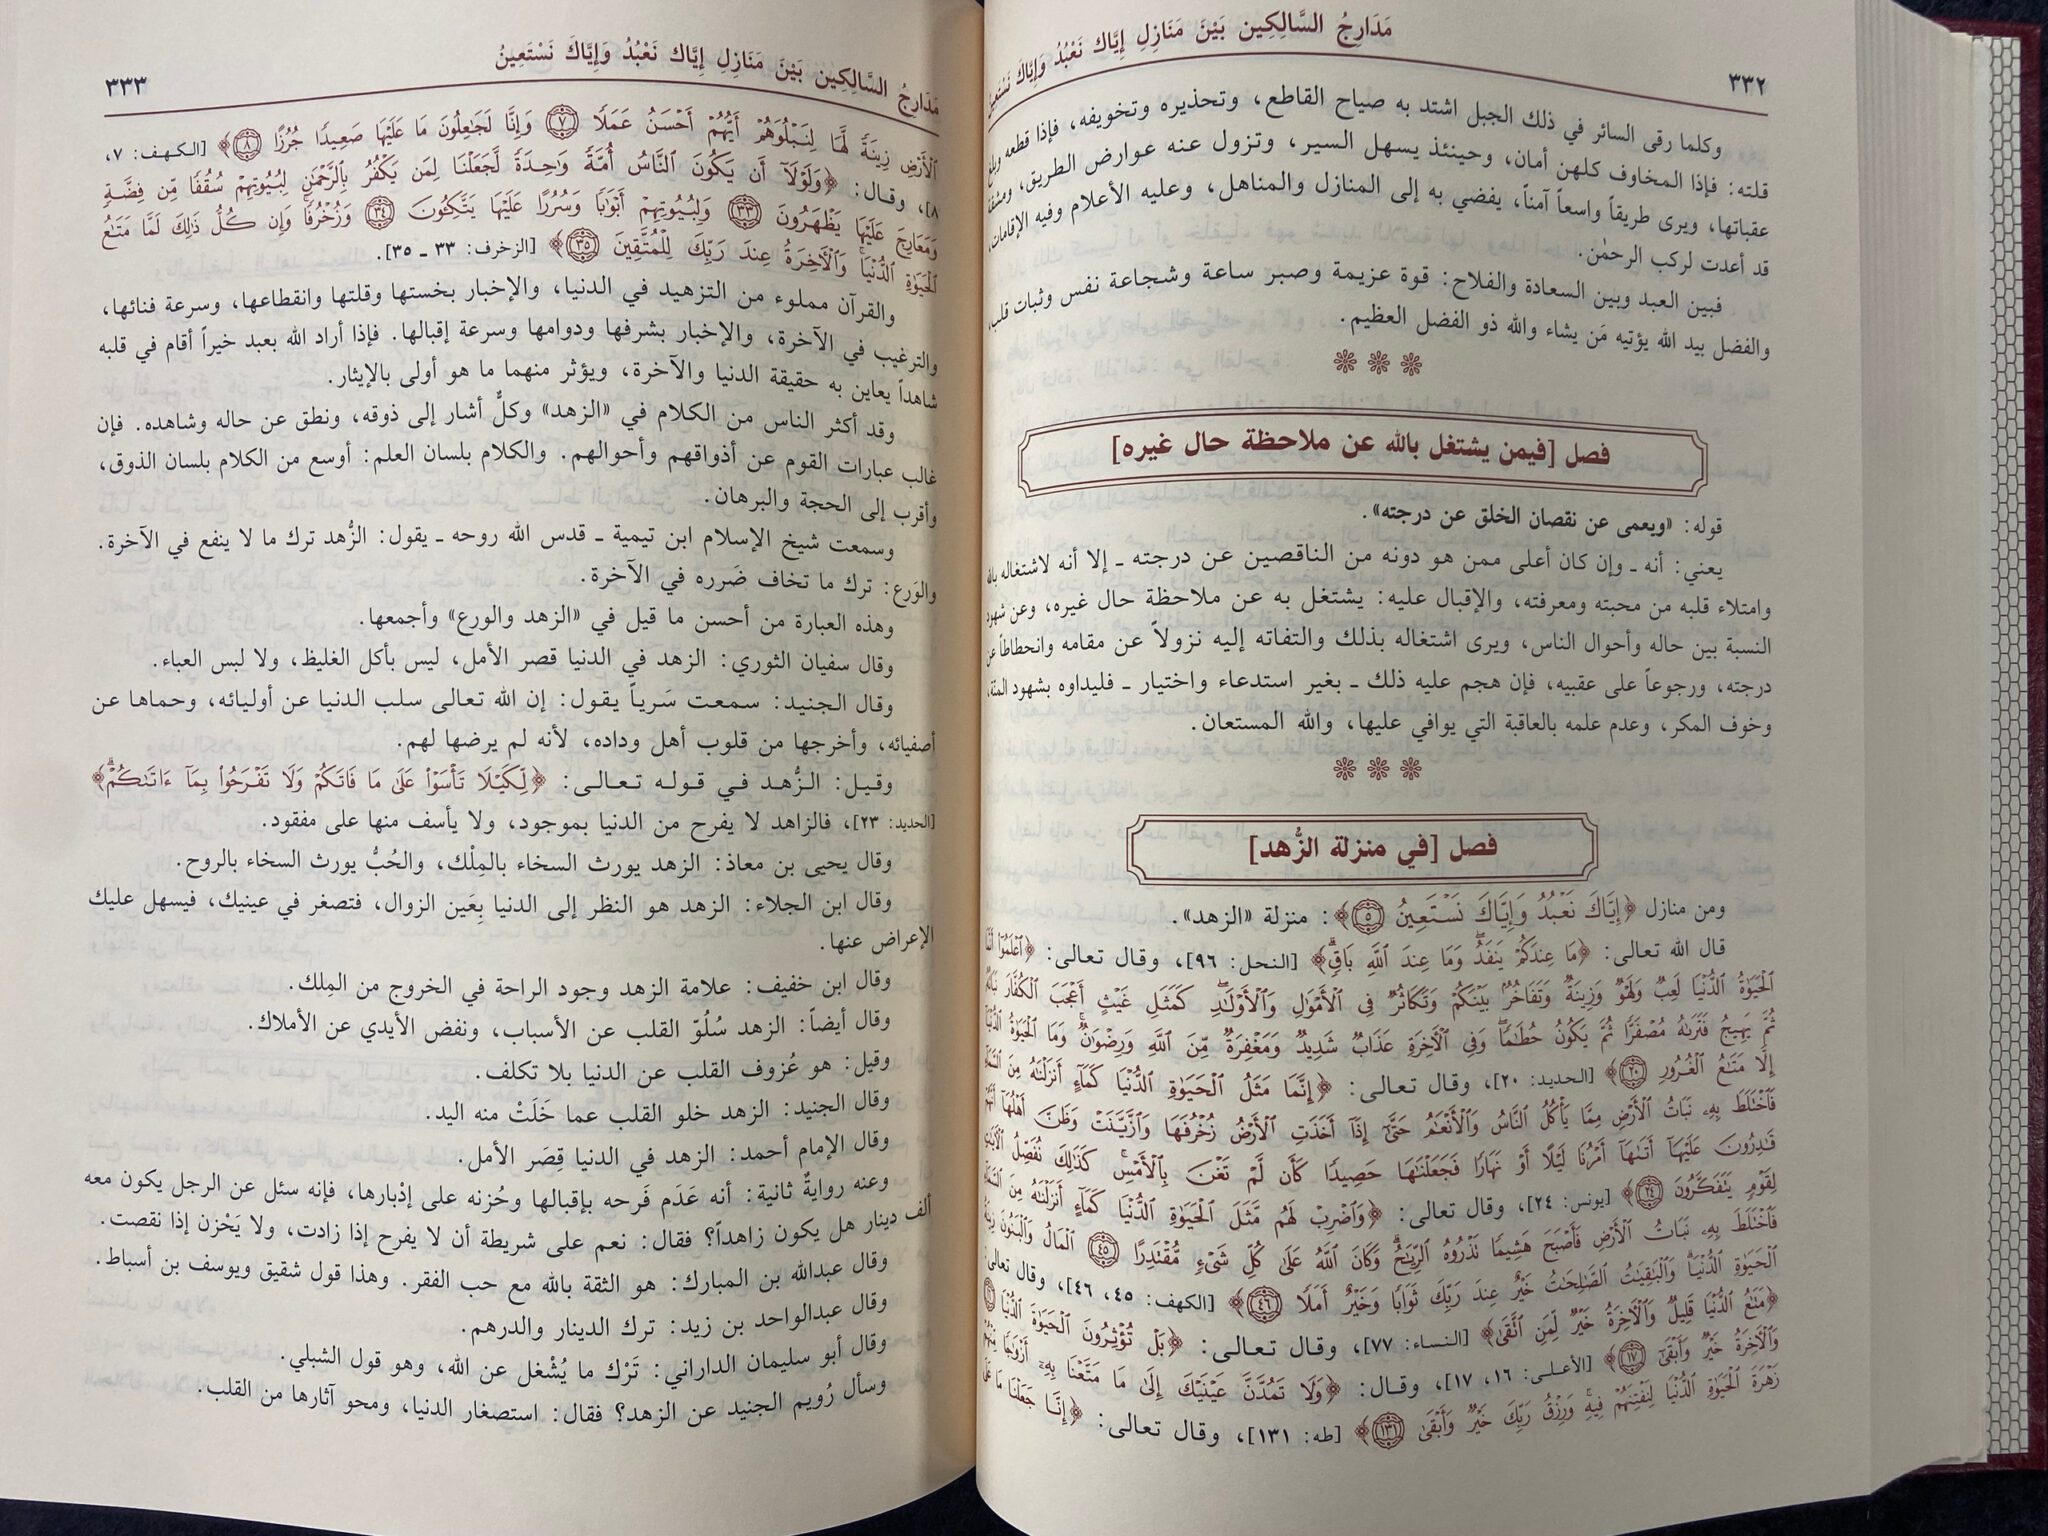 ٣٣٢
مَدَارِجُ السَّالِكِين بَيْنَ مَنَازِلِ إِيَّاكَ نَعْبُدُ وَإِيَّاكَ نَسْتَعِينُ
وكلما رقى السائر في ذلك الجبل اشتد به صياح القاطع، وتحذيره وتخويفه، فإذا قطعه وبلغ
قلته: فإذا المخاوف كلهن أمان، وحينئذ يسهل السير، وتزول عنه عوارض الطريق، ومشقة
عقباتها، ويرى طريقاً واسعاً آمناً، يفضي به إلى المنازل والمناهل، وعليه الأعلام وفيه الإقامات،
قد أعدت لركب الرحمٰن.
فبين العبد وبين السعادة والفلاح: قوة عزيمة وصبر ساعة وشجاعة نفس وثبات قلب،
والفضل بيد الله يؤتيه مَن يشاء والله ذو الفضل العظيم.
فصل [فيمن يشتغل بالله عن ملاحظة حال غيره]
قوله: «ويعمى عن نقصان الخلق عن درجته».
يعني: أنه ـ وإن كان أعلى ممن هو دونه من الناقصين عن درجته ـ إلا أنه لاشتغاله بالله
وامتلاء قلبه من محبته ومعرفته، والإقبال عليه: يشتغل به عن ملاحظة حال غيره، وعن شهود
النسبة بين حاله وأحوال الناس، ويرى اشتغاله بذلك والتفاته إليه نزولاً عن مقامه وانحطاطاً عن
درجته، ورجوعاً على عقبيه، فإن هجم عليه ذلك ـ بغير استدعاء واختيار ـ فليداوه بشهود المنة،
وخوف المكر، وعدم علمه بالعاقبة التي يوافي عليها، والله المستعان.
فصل [في منزلة الزُّهد]
ومن منازل ﴿إِيَّاكَ نَعْبُدُ وَإِيَّاكَ نَسْتَعِينُ ٥﴾: منزلة «الزهد».
قال الله تعالى: ﴿مَا عِندَكُمْ يَنفَدُ وَمَا عِندَ ٱللَّهِ بَاقٍ﴾ [النحل: ٩٦]، وقال تعالى: ﴿ٱعْلَمُوٓا۟ أَنَّمَا
ٱلْحَيَوٰةُ ٱلدُّنْيَا لَعِبٌ وَلَهْوٌ وَزِينَةٌ وَتَفَاخُرٌۢ بَيْنَكُمْ وَتَكَاثُرٌ فِى ٱلْأَمْوَٰلِ وَٱلْأَوْلَٰدِ كَمَثَلِ غَيْثٍ أَعْجَبَ ٱلْكُفَّارَ نَبَاتُهُۥ
ثُمَّ يَهِيجُ فَتَرَىٰهُ مُصْفَرًّا ثُمَّ يَكُونُ حُطَٰمًا وَفِى ٱلْءَاخِرَةِ عَذَابٌ شَدِيدٌ وَمَغْفِرَةٌ مِّنَ ٱللَّهِ وَرِضْوَٰنٌ وَمَا ٱلْحَيَوٰةُ ٱلدُّنْيَآ
إِلَّا مَتَٰعُ ٱلْغُرُورِ ٢٠﴾ [الحديد: ٢٠]، وقال تعالى: ﴿إِنَّمَا مَثَلُ ٱلْحَيَوٰةِ ٱلدُّنْيَا كَمَآءٍ أَنزَلْنَٰهُ مِنَ ٱلسَّمَآءِ
فَٱخْتَلَطَ بِهِۦ نَبَاتُ ٱلْأَرْضِ مِمَّا يَأْكُلُ ٱلنَّاسُ وَٱلْأَنْعَٰمُ حَتَّىٰٓ إِذَآ أَخَذَتِ ٱلْأَرْضُ زُخْرُفَهَا وَٱزَّيَّنَتْ وَظَنَّ أَهْلُهَآ أَنَّهُمْ
قَٰدِرُونَ عَلَيْهَآ أَتَىٰهَآ أَمْرُنَا لَيْلًا أَوْ نَهَارًا فَجَعَلْنَٰهَا حَصِيدًا كَأَن لَّمْ تَغْنَ بِٱلْأَمْسِ كَذَٰلِكَ نُفَصِّلُ ٱلْءَايَٰتِ
لِقَوْمٍ يَتَفَكَّرُونَ ٢٤﴾ [يونس: ٢٤]، وقال تعالى: ﴿وَٱضْرِبْ لَهُم مَّثَلَ ٱلْحَيَوٰةِ ٱلدُّنْيَا كَمَآءٍ أَنزَلْنَٰهُ مِنَ ٱلسَّمَآءِ
فَٱخْتَلَطَ بِهِۦ نَبَاتُ ٱلْأَرْضِ فَأَصْبَحَ هَشِيمًا تَذْرُوهُ ٱلرِّيَٰحُ وَكَانَ ٱللَّهُ عَلَىٰ كُلِّ شَىْءٍ مُّقْتَدِرًا ٤٥ ٱلْمَالُ وَٱلْبَنُونَ زِينَةُ
ٱلْحَيَوٰةِ ٱلدُّنْيَا وَٱلْبَٰقِيَٰتُ ٱلصَّٰلِحَٰتُ خَيْرٌ عِندَ رَبِّكَ ثَوَابًا وَخَيْرٌ أَمَلًا ٤٦﴾ [الكهف: ٤٥، ٤٦]، وقال تعالى:
﴿مَتَٰعُ ٱلدُّنْيَا قَلِيلٌ وَٱلْءَاخِرَةُ خَيْرٌ لِّمَنِ ٱتَّقَىٰ﴾ [النساء: ٧٧]، وقال تعالى: ﴿بَلْ تُؤْثِرُونَ ٱلْحَيَوٰةَ ٱلدُّنْيَا ١٦
وَٱلْءَاخِرَةُ خَيْرٌ وَأَبْقَىٰٓ ١٧﴾ [الأعلى: ١٦، ١٧]، وقال: ﴿وَلَا تَمُدَّنَّ عَيْنَيْكَ إِلَىٰ مَا مَتَّعْنَا بِهِۦٓ أَزْوَٰجًا مِّنْهُمْ
زَهْرَةَ ٱلْحَيَوٰةِ ٱلدُّنْيَا لِنَفْتِنَهُمْ فِيهِ وَرِزْقُ رَبِّكَ خَيْرٌ وَأَبْقَىٰ ١٣١﴾ [طه: ١٣١]، وقال تعالى: ﴿إِنَّا جَعَلْنَا مَا عَلَى
مَدَارِجُ السَّالِكِين بَيْنَ مَنَازِلِ إِيَّاكَ نَعْبُدُ وَإِيَّاكَ نَسْتَعِينُ
٣٣٣
ٱلْأَرْضِ زِينَةً لَّهَا لِنَبْلُوَهُمْ أَيُّهُمْ أَحْسَنُ عَمَلًا ٧ وَإِنَّا لَجَٰعِلُونَ مَا عَلَيْهَا صَعِيدًا جُرُزًا ٨﴾ [الكهف: ٧،
٨]، وقال: ﴿وَلَوْلَآ أَن يَكُونَ ٱلنَّاسُ أُمَّةً وَٰحِدَةً لَّجَعَلْنَا لِمَن يَكْفُرُ بِٱلرَّحْمَٰنِ لِبُيُوتِهِمْ سُقُفًا مِّن فِضَّةٍ
وَمَعَارِجَ عَلَيْهَا يَظْهَرُونَ ٣٣ وَلِبُيُوتِهِمْ أَبْوَٰبًا وَسُرُرًا عَلَيْهَا يَتَّكِـُٔونَ ٣٤ وَزُخْرُفًا وَإِن كُلُّ ذَٰلِكَ لَمَّا مَتَٰعُ
ٱلْحَيَوٰةِ ٱلدُّنْيَا وَٱلْءَاخِرَةُ عِندَ رَبِّكَ لِلْمُتَّقِينَ ٣٥﴾ [الزخرف: ٣٣ ـ ٣٥].
والقرآن مملوء من التزهيد في الدنيا، والإخبار بخستها وقلتها وانقطاعها، وسرعة فنائها،
والترغيب في الآخرة، والإخبار بشرفها ودوامها وسرعة إقبالها. فإذا أراد الله بعبد خيراً أقام في قلبه
شاهداً يعاين به حقيقة الدنيا والآخرة، ويؤثر منهما ما هو أولى بالإيثار.
وقد أكثر الناس من الكلام في «الزهد» وكلٌّ أشار إلى ذوقه، ونطق عن حاله وشاهده. فإن
غالب عبارات القوم عن أذواقهم وأحوالهم. والكلام بلسان العلم: أوسع من الكلام بلسان الذوق،
وأقرب إلى الحجة والبرهان.
وسمعت شيخ الإسلام ابن تيمية ـ قدس الله روحه ـ يقول: الزُّهد ترك ما لا ينفع في الآخرة.
والوَرع: ترك ما تخاف ضَرره في الآخرة.
وهذه العبارة من أحسن ما قيل في «الزهد والورع» وأجمعها.
وقال سفيان الثوري: الزهد في الدنيا قصر الأمل، ليس بأكل الغليظ، ولا لبس العباء.
وقال الجنيد: سمعت سَرياً يقول: إن الله تعالى سلب الدنيا عن أوليائه، وحماها عن
أصفيائه، وأخرجها من قلوب أهل وداده، لأنه لم يرضها لهم.
وقيل: الزُّهد في قوله تعالى: ﴿لِّكَيْلَا تَأْسَوْا۟ عَلَىٰ مَا فَاتَكُمْ وَلَا تَفْرَحُوا۟ بِمَآ ءَاتَىٰكُمْ﴾
[الحديد: ٢٣]، فالزاهد لا يفرح من الدنيا بموجود، ولا يأسف منها على مفقود.
وقال يحيى بن معاذ: الزهد يورث السخاء بالمِلْك، والحُبُّ يورث السخاء بالروح.
وقال ابن الجلاء: الزهد هو النظر إلى الدنيا بِعَين الزوال، فتصغر في عينيك، فيسهل عليك
الإعراض عنها.
وقال ابن خفيف: علامة الزهد وجود الراحة في الخروج من المِلك.
وقال أيضاً: الزهد سُلُوّ القلب عن الأسباب، ونفض الأيدي عن الأملاك.
وقيل: هو عُزوف القلب عن الدنيا بلا تكلف.
وقال الجنيد: الزهد خلو القلب عما خَلَتْ منه اليد.
وقال الإمام أحمد: الزهد في الدنيا قِصَر الأمل.
وعنه روايةٌ ثانية: أنه عَدَم فَرحه بإقبالها وحُزنه على إدْبارها، فإنه سئل عن الرجل يكون معه
ألف دينار هل يكون زاهداً؟ فقال: نعم على شريطة أن لا يفرح إذا زادت، ولا يَحْزن إذا نقصت.
وقال عبدالله بن المبارك: هو الثقة بالله مع حب الفقر. وهذا قول شقيق ويوسف بن أسباط.
وقال عبدالواحد بن زيد: ترك الدينار والدرهم.
وقال أبو سليمان الداراني: تَرْك ما يُشْغل عن الله، وهو قول الشبلي.
وسأل رُويم الجنيد عن الزهد؟ فقال: استصغار الدنيا، ومحو آثارها من القلب.